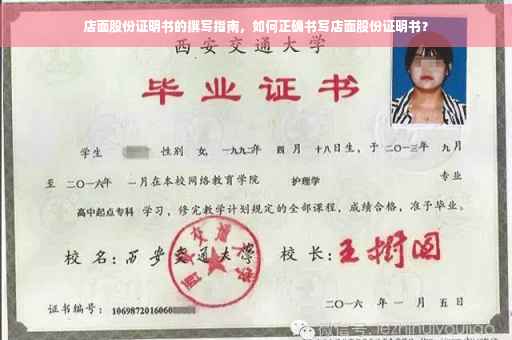 店面股份证明书的撰写指南，如何正确书写店面股份证明书？
西安交通大学
毕业证书
学生 性别 女, 一九九二年 四月 十八日生, 于二〇一三年 九月
至 二〇一六年 一月在本校网络教育学院 护理学 专业
高中起点专科 学习, 修完教学计划规定的全部课程, 成绩合格, 准予毕业。
校名: 西安交通大学 校长: 王树国
西安交通大学
证书编号: 1069872016060
二〇一六年 一月 五日
微信号: jezhinuiyoujiao